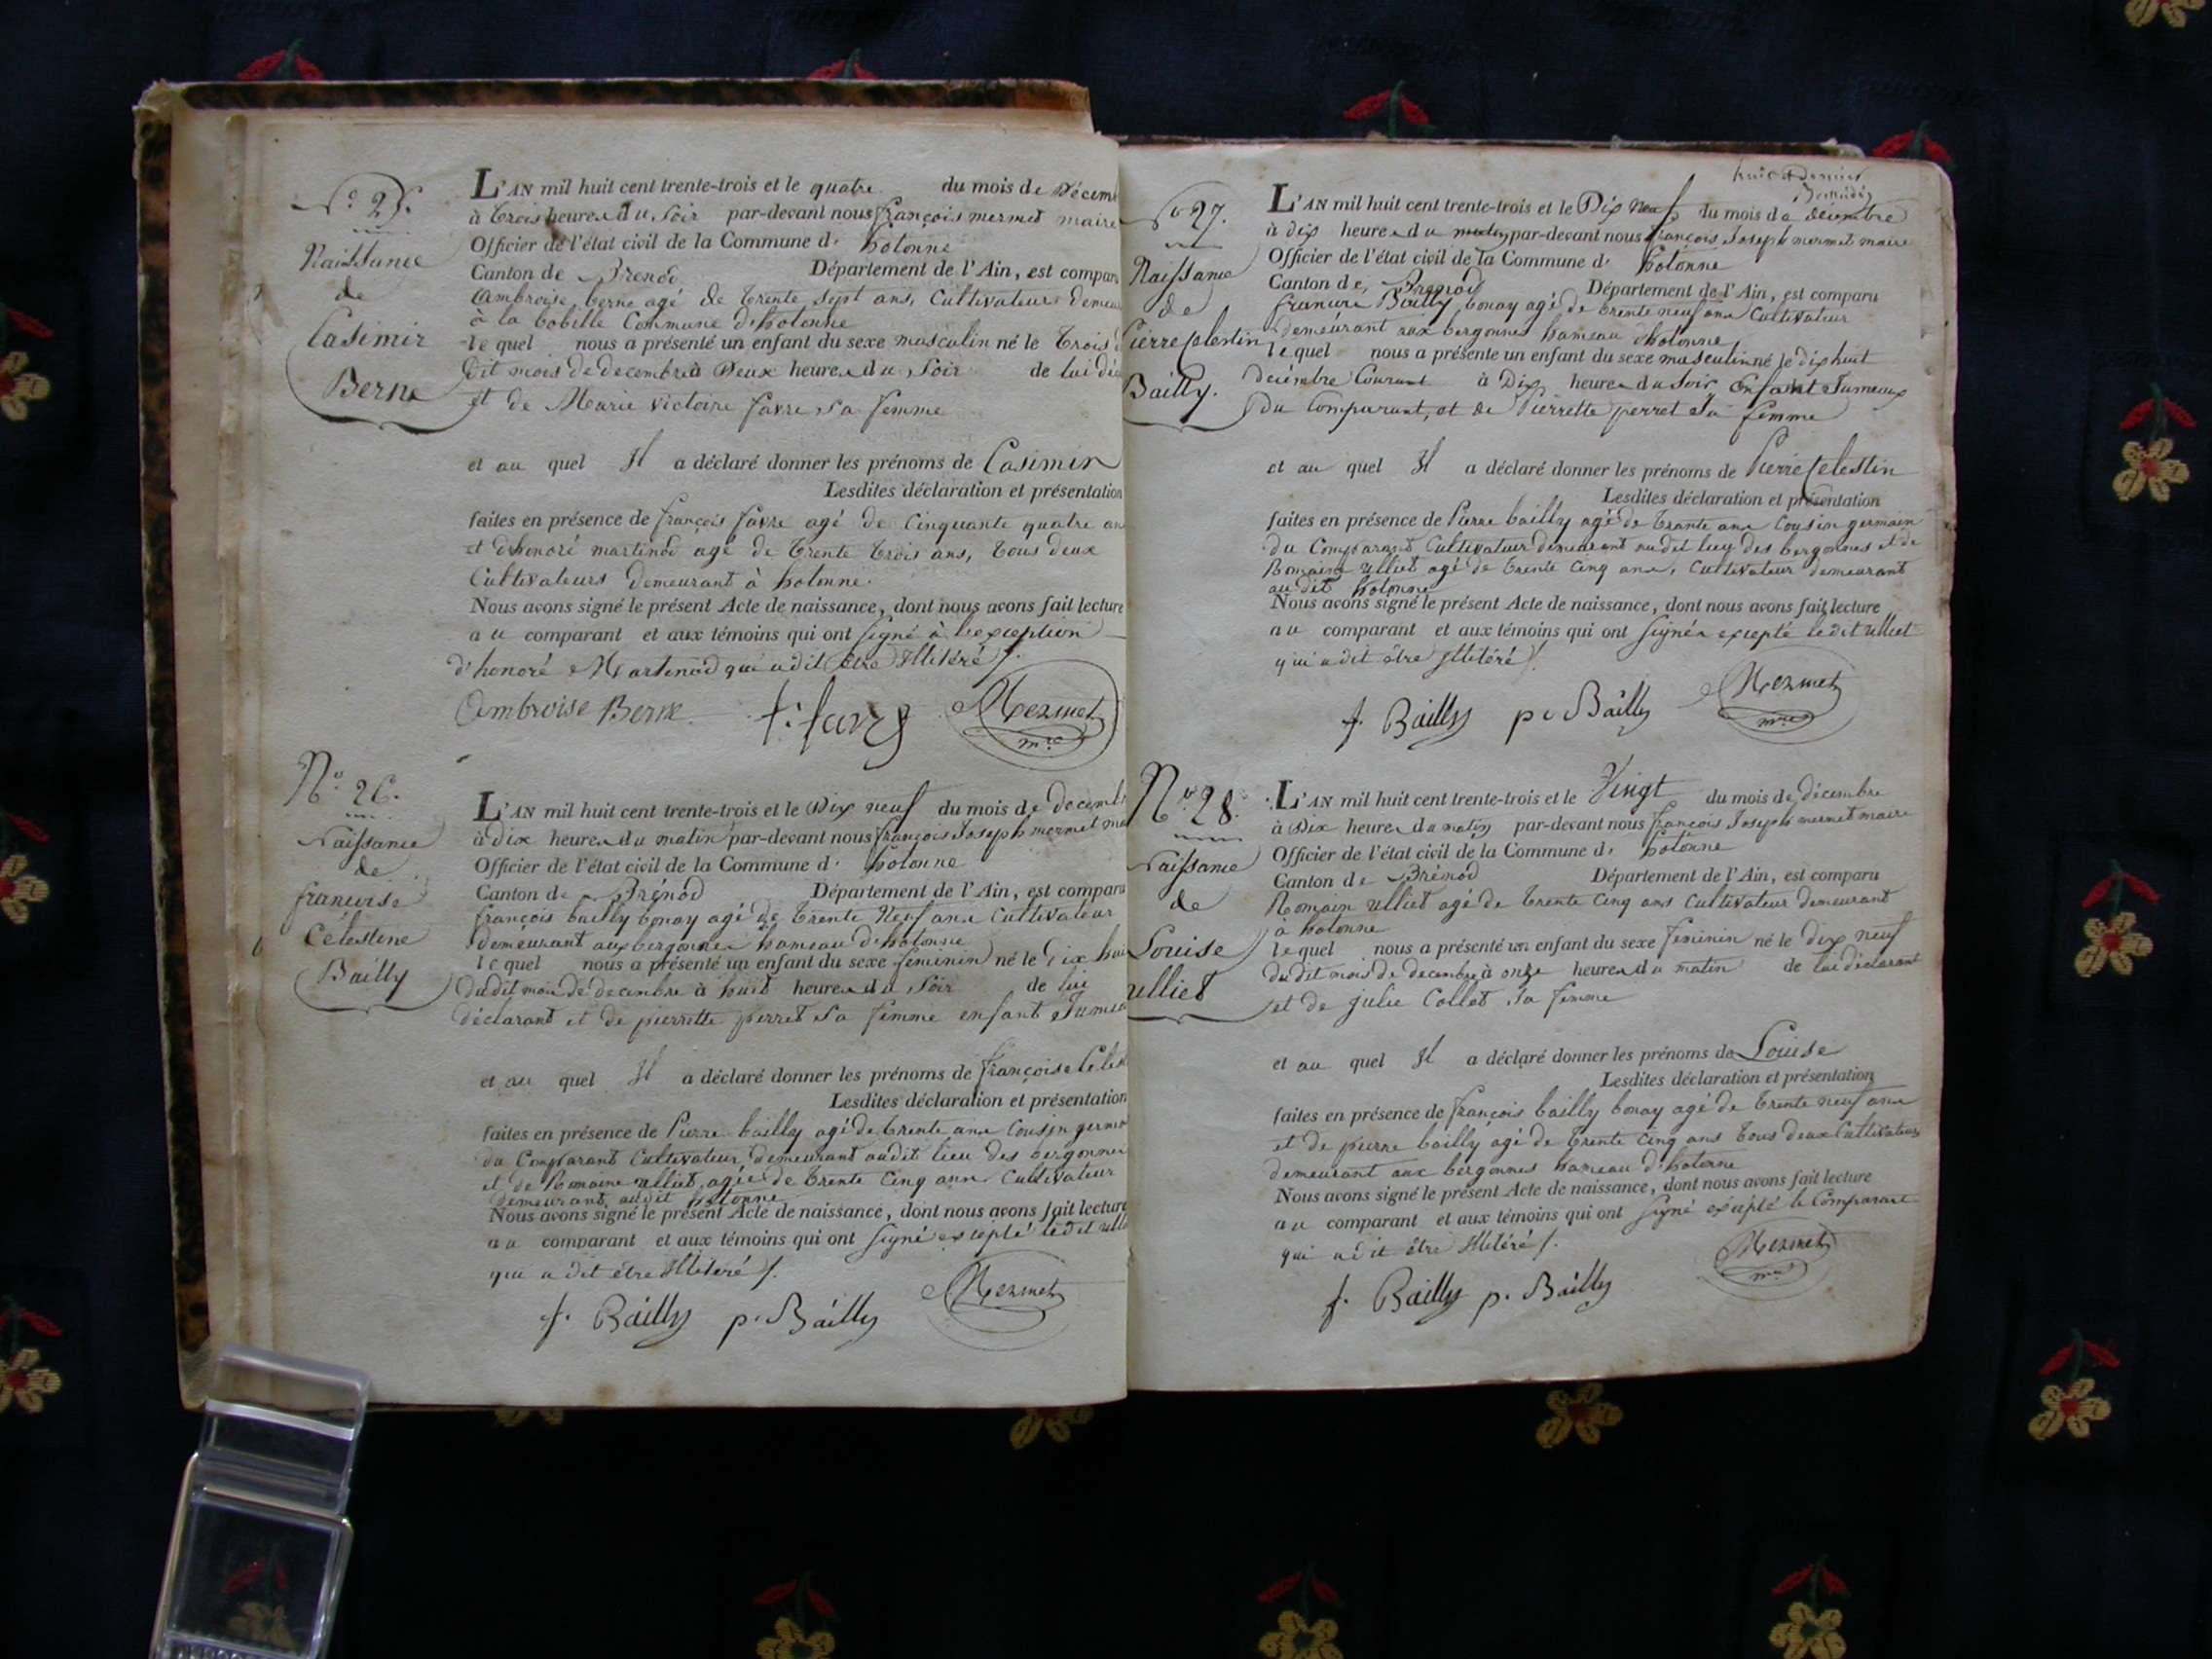 N.o 25.
Naissance
de
Casimir
Berne
L'AN mil huit cent trente-trois et le quatre du mois de Décem
à trois heures du soir par-devant nous françois mermet maire
Officier de l'état civil de la Commune d' hotonne
Canton de Brenod Département de l'Ain, est comparu
Ambroise berne agé de trente sept ans, Cultivateur demeu
à la bobille Commune d'hotonne
lequel nous a présenté un enfant du sexe masculin né le trois
dit mois de decembre à Deux heures du soir de lui dé
et de Marie victoire favre sa femme
et au quel Il a déclaré donner les prénoms de Casimir
Lesdites déclaration et présentation
faites en présence de françois favre agé de Cinquante quatre an
et d'honoré martinod agé de trente trois ans, tous deux
Cultivateurs demeurant à hotonne.
Nous avons signé le présent Acte de naissance, dont nous avons fait lecture
au comparant et aux témoins qui ont signé à l'exception
d'honoré Martinod qui a dit être Illitéré /.
Ambroise Berne f. favre Mermet
m.re
N.o 26.
Naissance
de
francoise
Célestine
Bailly
L'AN mil huit cent trente-trois et le Dix neuf du mois de decemb
à dix heures du matin par-devant nous françois Joseph mermet ma
Officier de l'état civil de la Commune d' hotonne
Canton de Brénod Département de l'Ain, est comparu
françois bailly bonay agé de trente Neuf ans Cultivateur
demeurant aux bergonnes hameau d'hotonne
lequel nous a présenté un enfant du sexe feminin né le Dix hui
dudit mois de decembre à huit heures du soir de lui
déclarant et de pierrette perret sa femme enfant Jumea
et au quel Il a déclaré donner les prénoms de françoise Celes
Lesdites déclaration et présentation
faites en présence de Pierre bailly agé de trente ans Cousin germai
du Comparant Cultivateur demeurant audit lieu des bergonnes
et de Romain ulliet agé de trente Cinq ans Cultivateur
demeurant audit hotonne
Nous avons signé le présent Acte de naissance, dont nous avons fait lecture
au comparant et aux témoins qui ont signé excepté ledit ulli
qui a dit être Illitéré /.
f. Bailly p. Bailly Mermet
N.o 27.
Naissance
de
Pierre Célestin
Bailly.
L'AN mil huit cent trente-trois et le Dix Neuf du mois de decembre
à dix heures du matin par-devant nous françois Joseph mermet maire
Officier de l'état civil de la Commune d' hotonne
Canton de Brenod Département de l'Ain, est comparu
francois Bailly bonay agé de trente neuf ans Cultivateur
demeurant aux bergonnes hameau d'hotonne
lequel nous a présenté un enfant du sexe masculin né le dix huit
decembre Courant à Dix heures du soir, Enfant Jumeaux
du Comparant, et de Pierrette perret sa femme
et au quel Il a déclaré donner les prénoms de Pierre Celestin
Lesdites déclaration et présentation
faites en présence de Pierre bailly agé de trante ans Cousin germain
du Comparant Cultivateur demeurant audit lieu des bergonnes et de
Romain ulliet agé de trente Cinq ans, Cultivateur demeurant
audit hotonne
Nous avons signé le présent Acte de naissance, dont nous avons fait lecture
au comparant et aux témoins qui ont signés excepté ledit ulliet
qui a dit être Illitéré /.
f. Bailly p. Bailly Mermet
m.re
N.o 28.
Naissance
de
Louise
ulliet
L'AN mil huit cent trente-trois et le Vingt du mois de décembre
à Dix heures du matin par-devant nous françois Joseph mermet maire
Officier de l'état civil de la Commune d' hotonne
Canton de Brénod Département de l'Ain, est comparu
Romain ulliet agé de trente Cinq ans Cultivateur demeurant
à hotonne
lequel nous a présenté un enfant du sexe feminin né le dix neuf
dudit mois de decembre à onze heures du matin de lui déclarant
et de julie Collet sa femme
et au quel Il a déclaré donner les prénoms de Louise
Lesdites déclaration et présentation
faites en présence de françois bailly bonay agé de trente neuf ans
et de pierre bailly agé de trente cinq ans tous deux Cultivateurs
demeurant aux bergonnes hameau d'hotonne
Nous avons signé le présent Acte de naissance, dont nous avons fait lecture
au comparant et aux témoins qui ont signé excépté le Comparant
qui a dit être Illitéré /.
f. Bailly p. Bailly Mermet
m.re